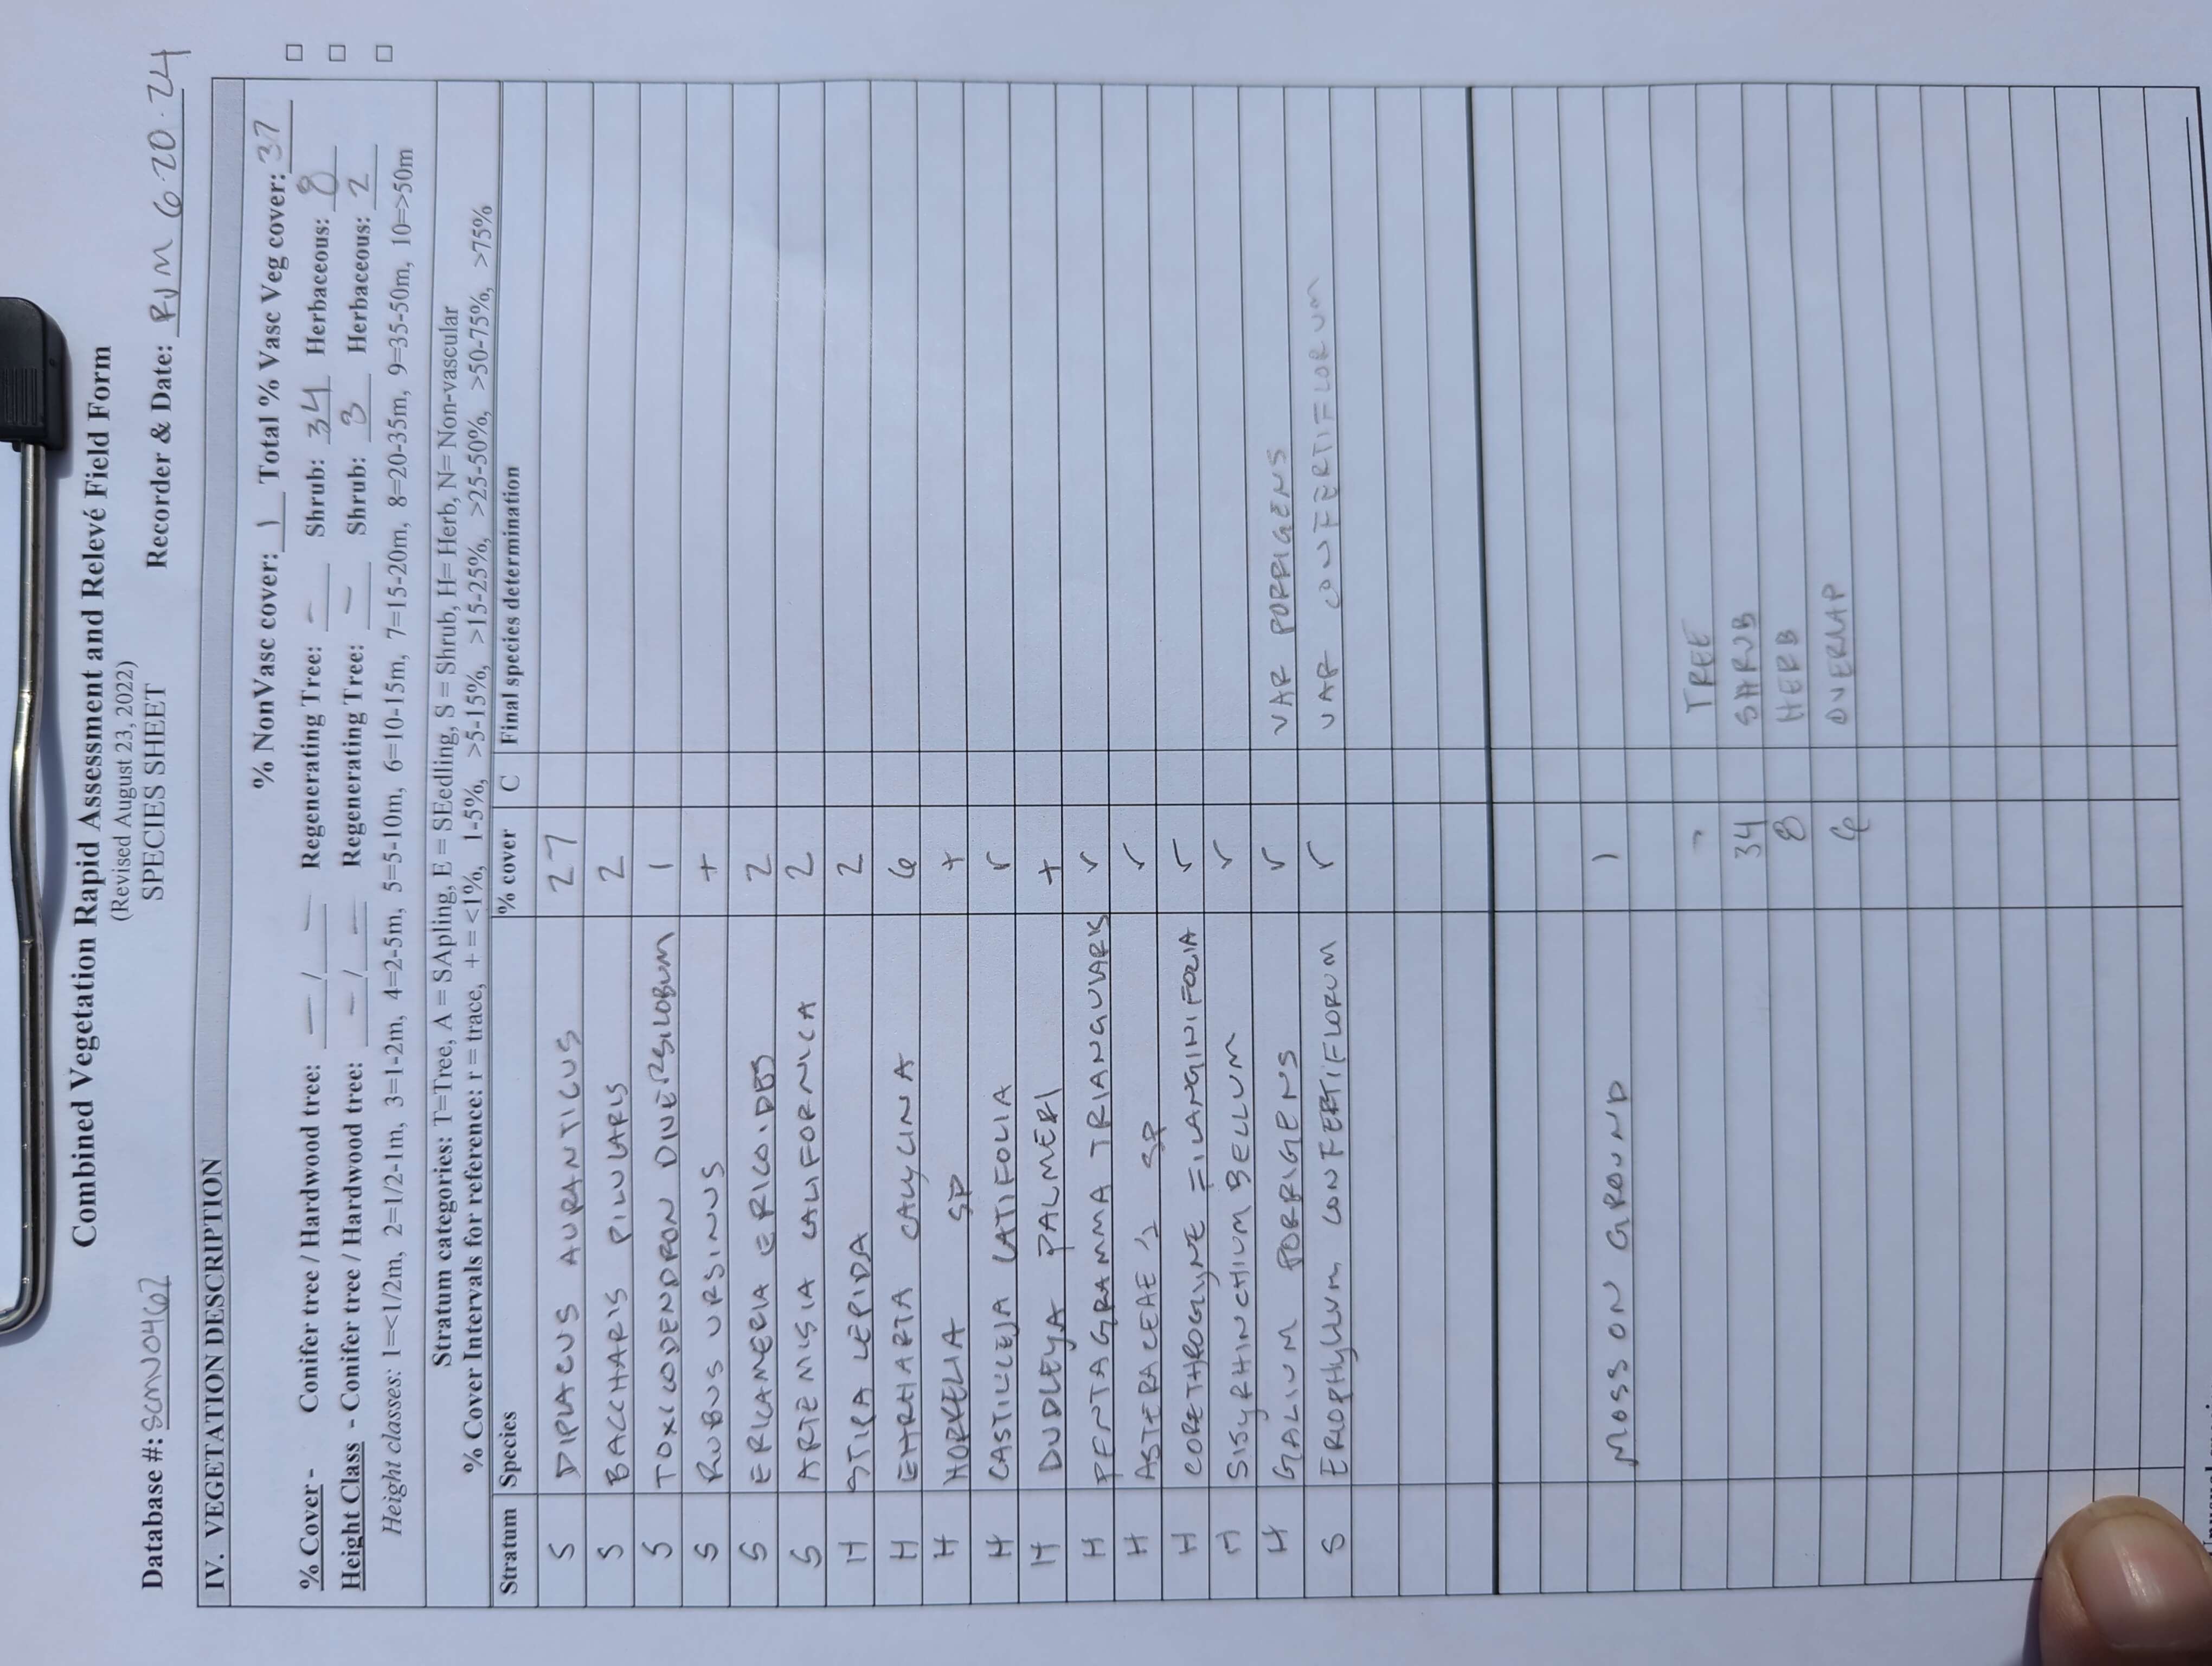 Combined Vegetation Rapid Assessment and Relevé Field Form
(Revised August 23, 2022)
SPECIES SHEET
Database #: SCMV0462 Recorder & Date: RJM 6.20.24
IV. VEGETATION DESCRIPTION
% NonVasc cover: 1 Total % Vasc Veg cover: 37
% Cover - Conifer tree / Hardwood tree: — / — Regenerating Tree: – Shrub: 34 Herbaceous: 8
Height Class - Conifer tree / Hardwood tree: — / — Regenerating Tree: – Shrub: 3 Herbaceous: 2
Height classes: 1=<1/2m, 2=1/2-1m, 3=1-2m, 4=2-5m, 5=5-10m, 6=10-15m, 7=15-20m, 8=20-35m, 9=35-50m, 10=>50m
Stratum categories: T=Tree, A = SApling, E = SEedling, S = Shrub, H= Herb, N= Non-vascular
% Cover Intervals for reference: r = trace, + = <1%, 1-5%, >5-15%, >15-25%, >25-50%, >50-75%, >75%
Stratum Species % cover C Final species determination
S DIPLACUS AURANTICUS 27
S BACCHARIS PILULARIS 2
S TOXICODENDRON DIVERSILOBUM 1
S RUBUS URSINUS +
S ERICAMERIA ERICOIDES 2
S ARTEMISIA CALIFORNICA 2
H STIPA LEPIDA 2
H EHRHARTA CALYCINA 6
H HORKELIA SP +
H CASTILLEJA LATIFOLIA r
H DUDLEYA PALMERI +
H PENTAGRAMMA TRIANGULARIS r
H ASTERACEAE SP r
H CORETHROGYNE FILANGINIFOLIA r
H SISYRHINCHIUM BELLUM r
H GALIUM PORRIGENS r VAR PORRIGENS
S ERIOPHYLLUM CONFERTIFLORUM r VAR CONFERTIFLORUM
MOSS ON GROUND 1
- TREE
34 SHRUB
8 HERB
6 OVERLAP